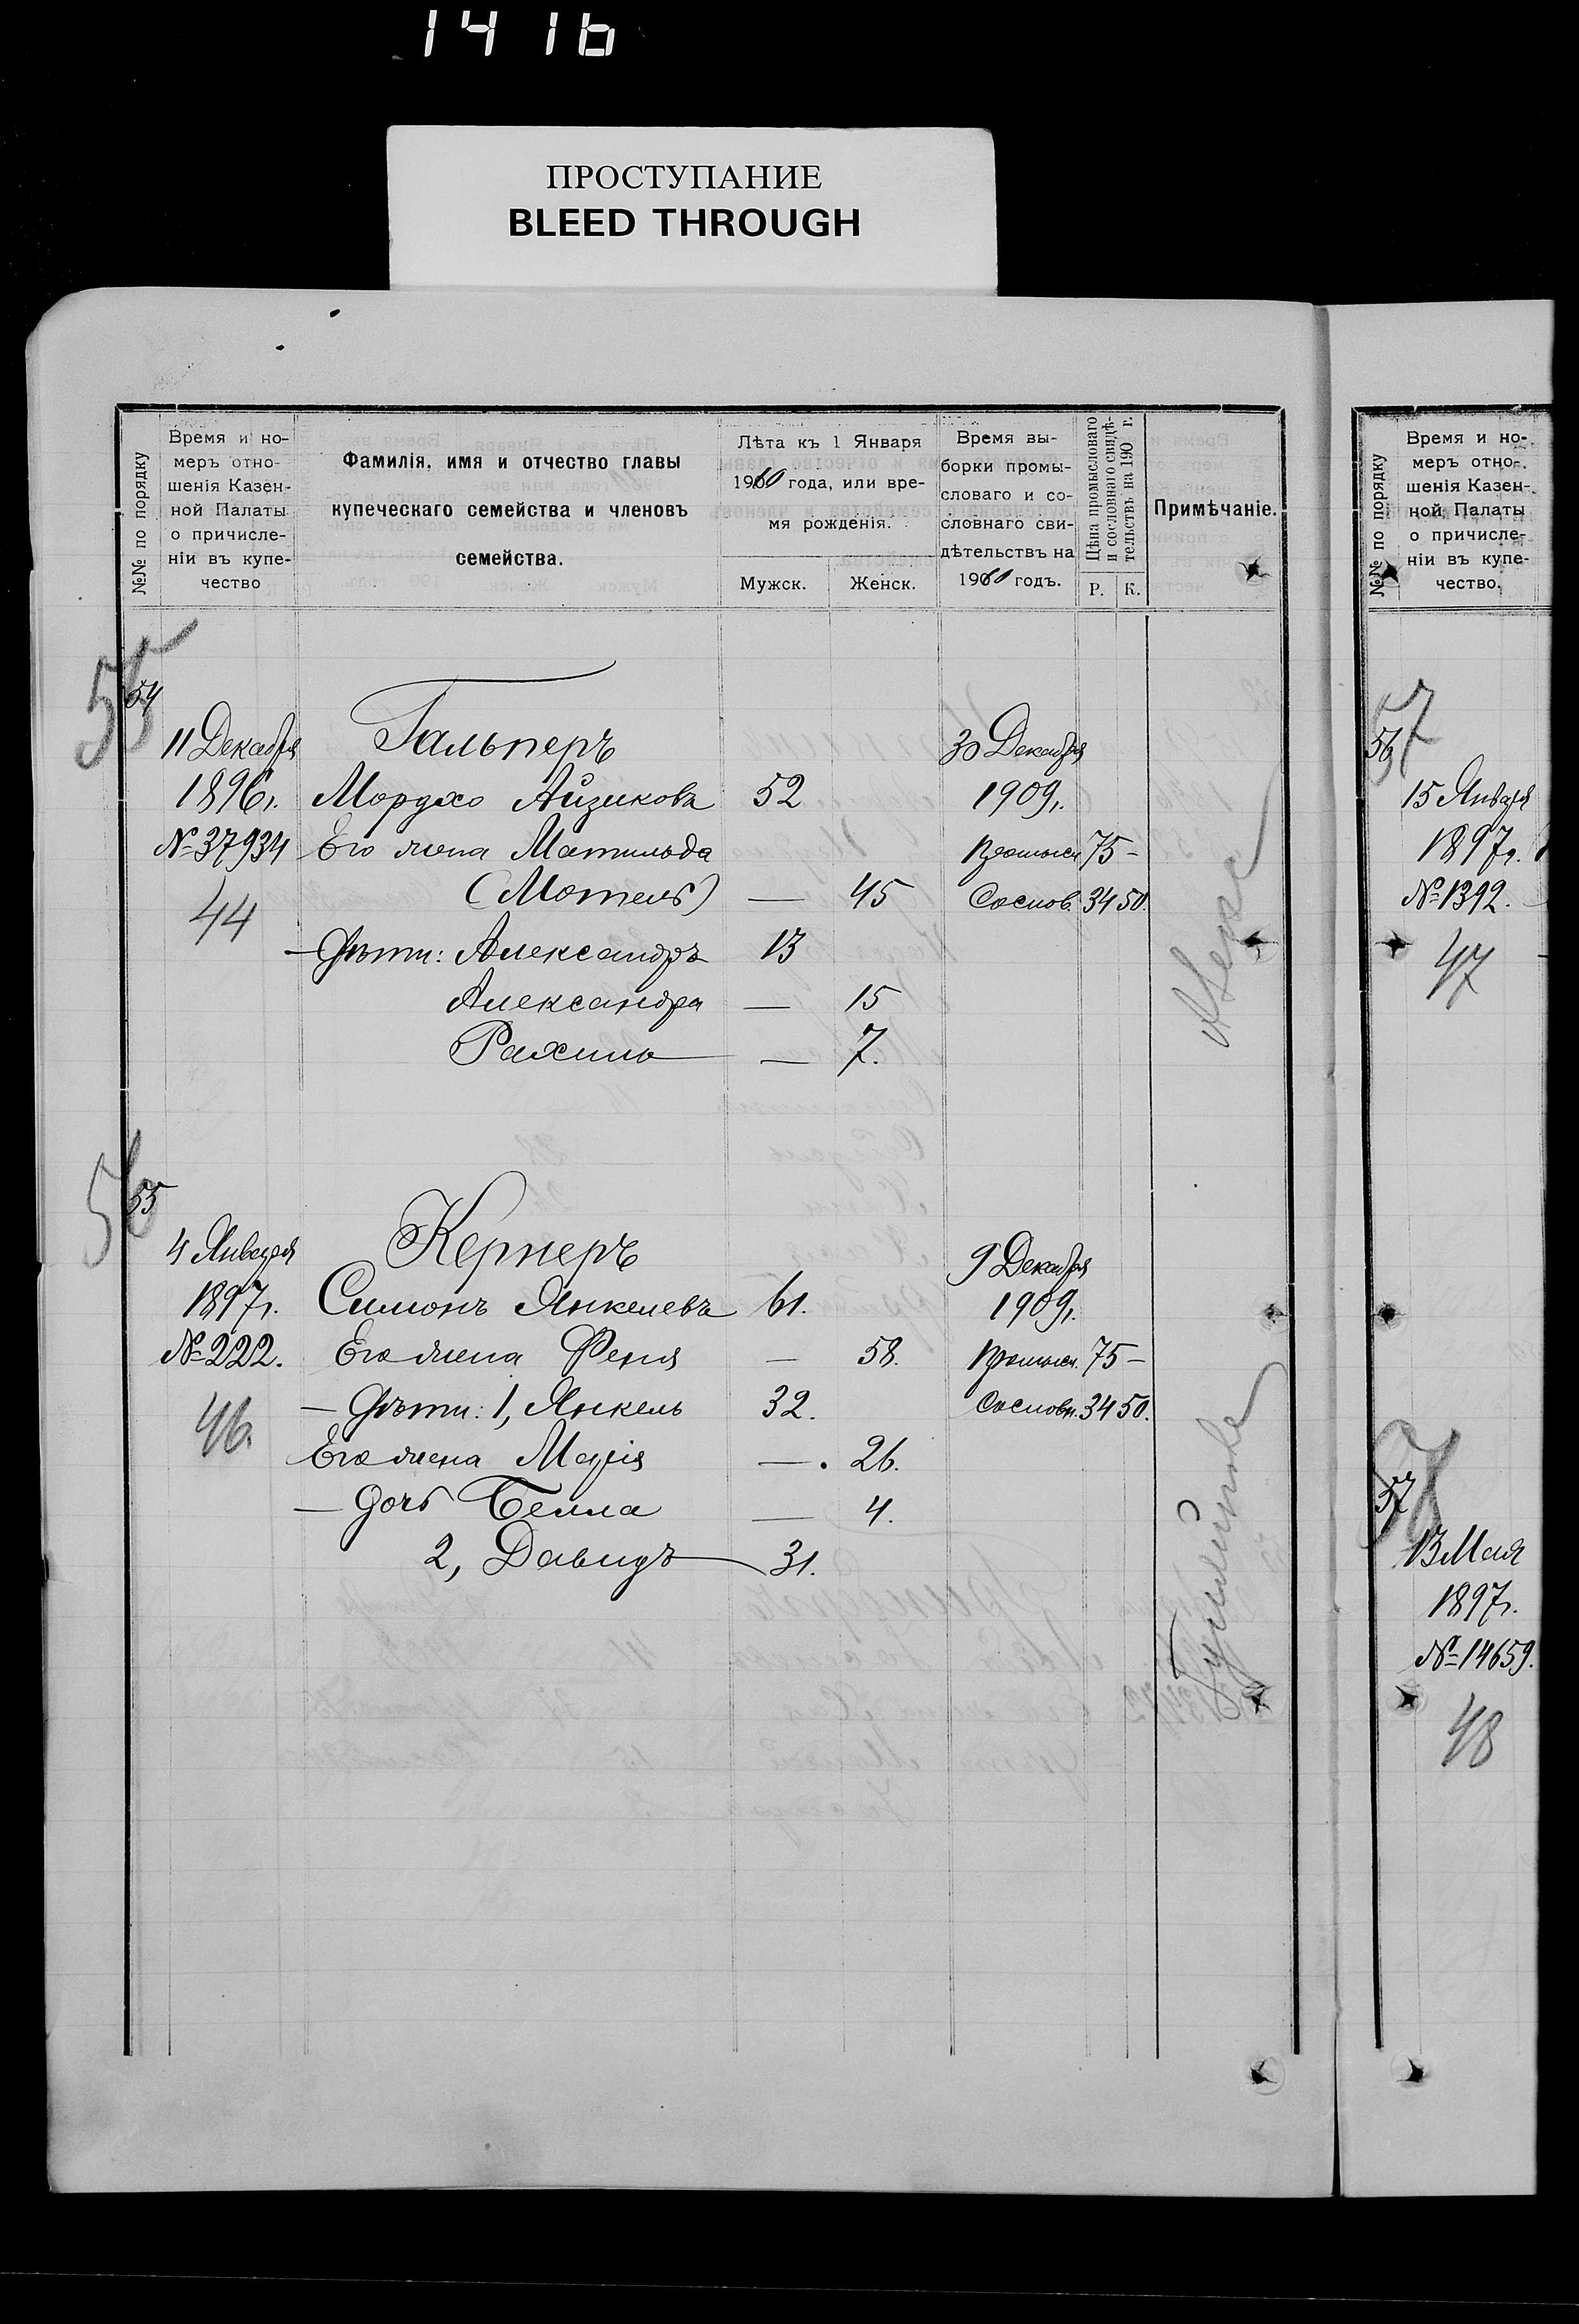 1416
ПРОСТУПАНИЕ
BLEED THROUGH
№№ по порядку
Время и но-
меръ отно-
шенія Казен-
ной Палаты
о причисле-
ніи въ купе-
чество
Фамилія, имя и отчество главы
купеческаго семейства и членовъ
семейства.
Лѣта къ 1 Января
1910 года, или вре-
мя рожденія.
Мужск.
Женск.
Время вы-
борки промы-
словаго и со-
словнаго сви-
дѣтельствъ на
1910 годъ.
Цѣна промысловаго
и сословнаго свидѣ-
тельствъ на 190 г.
Р.
К.
Примѣчаніе.
55
54
11 Декабря Гальперъ 30 Декабря
1896г. Мордхо Айзиковъ 52 1909г.
№ 37934 Его жена Матильда Промысл 75 -
(Мотель) — 45 Сослов. 34 50.
44
— Дѣти: Александръ 13
Александра — 15
Рахиль — 7.
56
55
4 Января Кернеръ 9 Декабря
1897г. Симонъ Янкелевъ 61. 1909г.
№ 222. Его жена Феня — 58. Промысл. 75 -
— Дѣти: 1, Янкель 32. Сословн. 34 50.
46.
Его жена Марія — 26.
— дочь Белла — 4.
2, Давидъ 31.
№№ по порядку
Время и но-
меръ отно-
шенія Казен-
ной Палаты
о причисле-
ніи въ купе-
чество.
57
56
15 Января
1897г.
№ 1392.
47
58
57
13 Мая
1897г.
№ 14659.
48